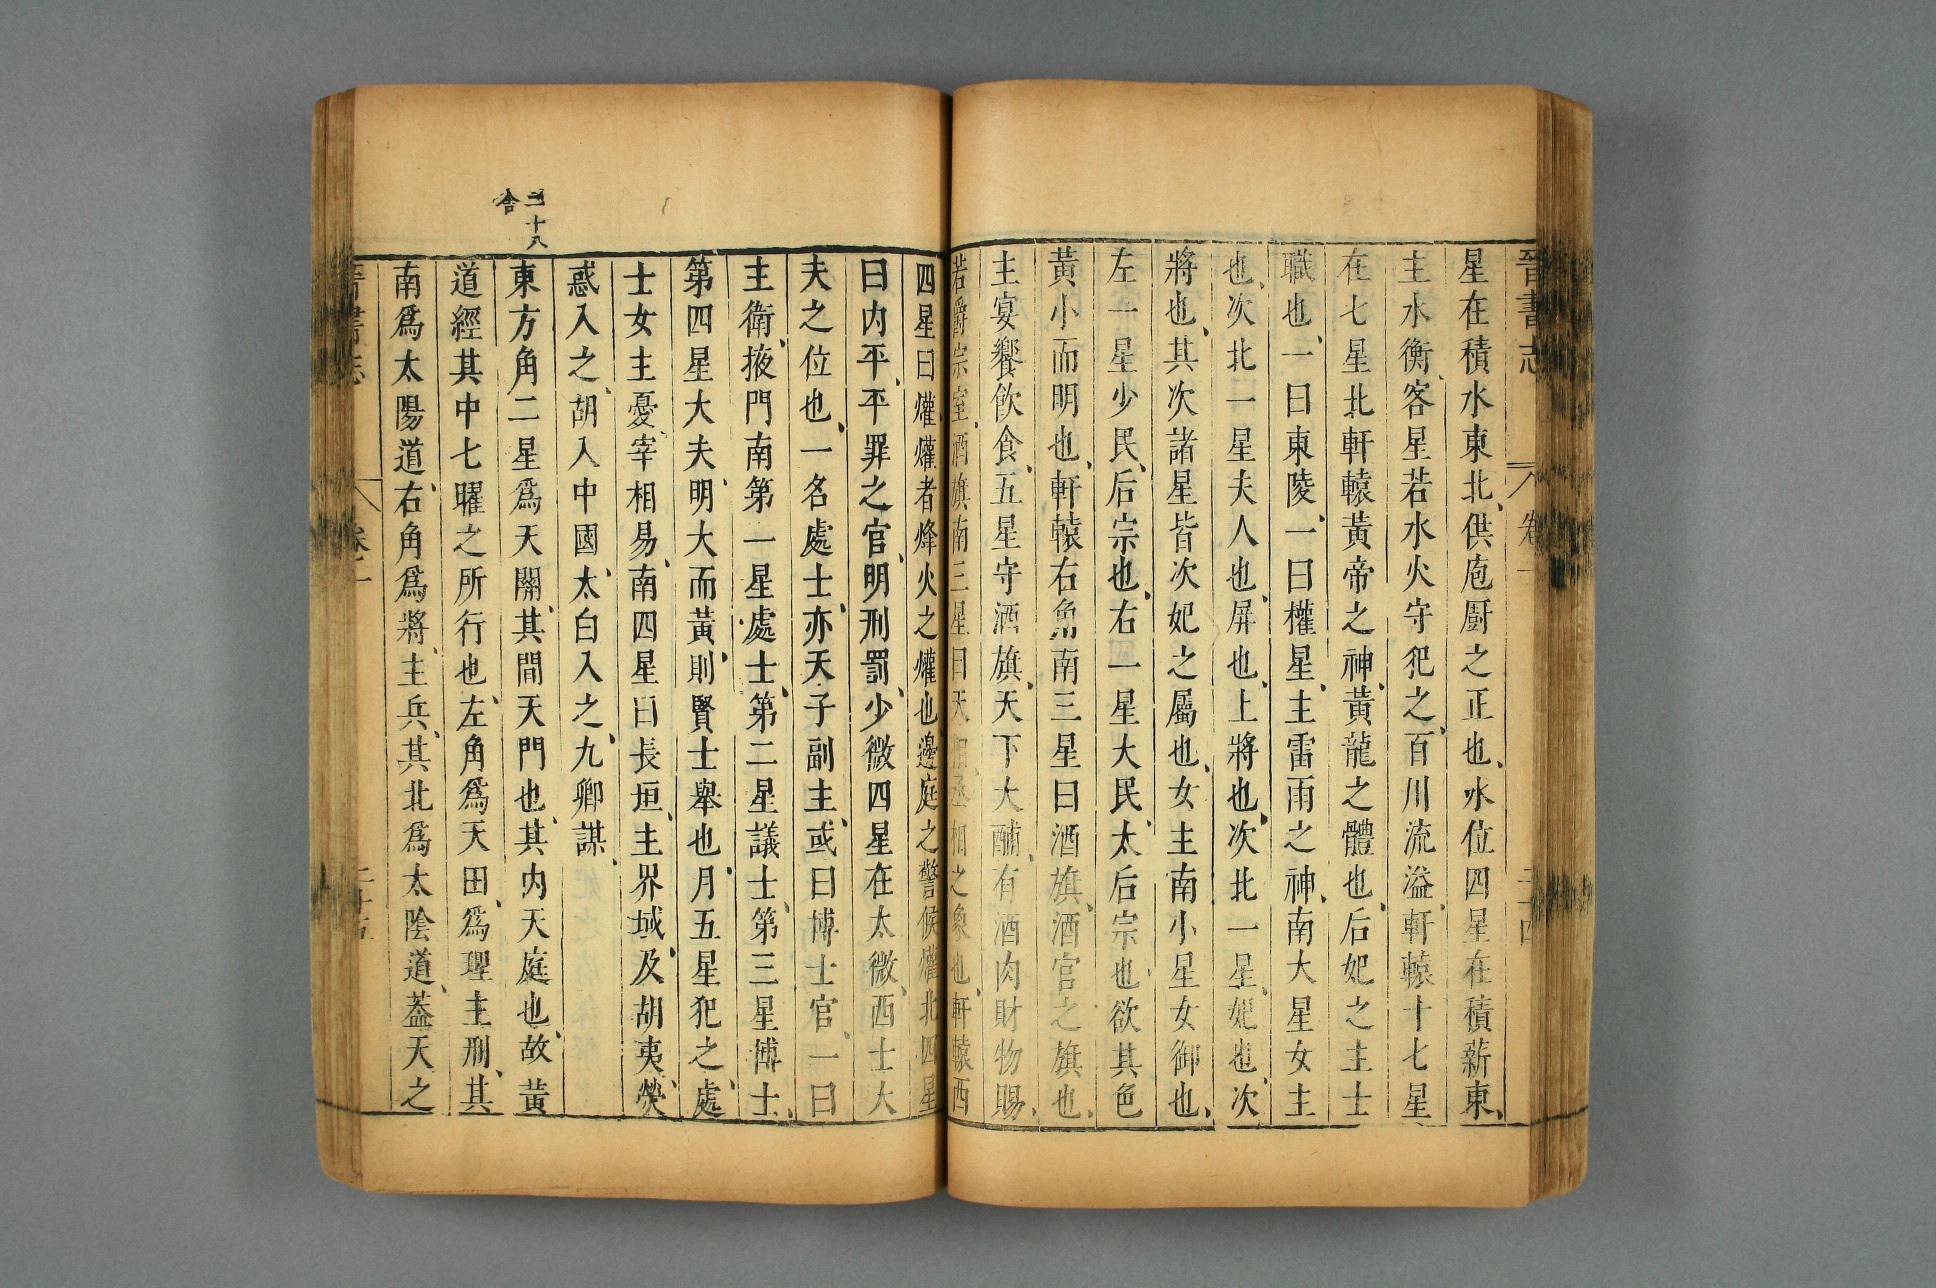 晉書志 卷一 二十四
星在積水東北、供庖厨之正也、水位四星在積薪東、
主水衡、客星若水火守犯之、百川流溢、軒轅十七星
在七星北軒轅黃帝之神、黃龍之體也、后妃之主士
職也、一曰東陵、一曰權星、主雷雨之神、南大星女主
也、次北一星夫人也、屏也、上將也、次北一星、妃也、次
將也、其次諸星皆次妃之屬也、女主南小星女御也、
左一星少民、后宗也、右一星大民、太后宗也欲其色
黃小而明也、軒轅右角南三星曰酒旗、酒官之旗也、
主宴饗飲食、五星守酒旗、天下大酺、有酒肉財物賜、
若爵宗室、酒旗南三星曰天相、丞相之象也、軒轅西
四星曰爟、爟者烽火之爟也、邊庭之警候、爟北四星
曰内平、平罪之官、明刑罰、少微四星在太微西士大
夫之位也、一名處士、亦天子副主、或曰博士官、一曰
主衛、掖門南第一星處士、第二星議士、第三星博士、
第四星大夫、明大而黃、則賢士舉也、月五星犯之、處
士女主憂、宰相易、南四星曰長垣、主界域及胡夷、熒
惑入之、胡入中國、太白入之、九卿謀、
二十八
舍
東方角二星爲天關、其間天門也、其内天庭也、故黃
道經其中七曜之所行也、左角爲天田、爲理主刑、其
南爲太陽道、右角爲將、主兵、其北爲太陰道、蓋天之
晉書志